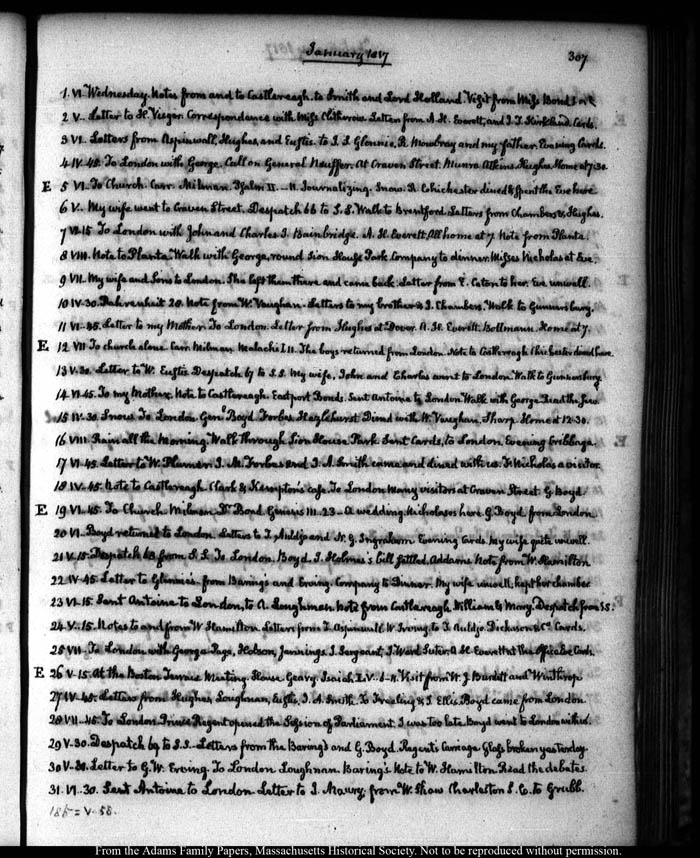 January 1817
307
1. VI. Wednesday. Notes from and to Castlereagh. to Smith and Lord Holland. Visit from Miss Bond
2 V. Letter to H. Correspondence with Miss Clitherow. Letters from A. H. Everett, and J. T. Kirkland. Cards.
3 VI. Letters from Aspinwall, Hughes, and Eustis. to J. I. Glennie, R. Mowbray and my father. Evening Cards.
4 IV. 45. To London with George. Call on General Neuffer. At Craven Street. Munro Atkins. Hughes. Home at 7:30.
E 5 VI. To Church. Carr. Milman. Psalm II. 11. Journalizing. Snow. R. Chichester dined & spent the Eve here
6 V. My wife went to Craven Street. Despatch 66 to S.S. Walk to Brentford. Letters from Chambers &, Hughes.
7 VI. 15 To London with John and Charles. J. Bainbridge. A. H. Everett. All home at 7. Note from Planta.
8 VIII. Note to Planta. Walk with George, round Sion House Park. Company to dinner. Misses Nicholas at Eve.
9 VII. My wife and Sons to London. She left them there and came back. Letter from E. Caton to her. Eve unwell.
10 IV. 30. Fahrenheit 20. Note from W. Vaughan. Letters to my brother & J. Chambers. Walk to Gunnersbury.
11 VI. 45. Letter to my Mother. To London. Letter from Hughes at Dover. A. H. Everett. Bollmann. Home at 7.
E 12 VII To church alone. Carr. Milman. Malachi III. The boys returned from London. Note to Castlereagh. Chichester dined here.
13 V. 30. Letter to W. Eustis. Despatch 67 to S.S. My wife, John and Charles went to London. Walk to Gunnersbury
14 VI. 45. To my Mother. Note to Castlereagh. Eastport Bonds. Sent Antoine to London. Walk with George. Read the
15 IV. 30. Snow. To London. Genl. Boyd. Forbes. Hazlehurst. Dined with W. Vaughan. Sharp. Home at 12.30.
16 VIII. Rain all the Morning. Walk through Sion House Park. Sent Cards, to London. Evening Cribbage.
17 VI. 45. Letter to W. Plumer. J. M. Forbes and J. A. Smith came and dined with us. F. Nicholas a visitor.
18 IV. 45. Note to Castlereagh. Clark & Kempton's case. To London. Many visitors at Craven Street. G. Boyd.
E 19. VI. 45. To Church. Milman. Dr. Bond. Genesis III. 23 — A wedding. Nicholas's here. G. Boyd. from London
20 VI. Boyd returned to London. Letters to J. Auldjo and N. G. Ingraham. Evening Cards. My wife quite unwell.
21 V. 15. Despatch 68 from S.S. To London. Boyd. J. Holmes's bill settled. Addams. Note from W. Hamilton
22 IV. 45 Letter to Glennie's. from Baring's and Erving. Company to Dinner. My wife unwell, kept her chamber
23 VI. 15. Sent Antoine to London, to A. Loughnan. Note from Castlereagh. William & Mary. Despatch from S.S.
24 V. 15. Notes to and from W. Hamilton. Letters from T. Aspinwall. W. Irving, to J. Auldjo. Dickason & Co. Cards.
25 VII. To London with George. Page, Hobson, Jennings. J. Sergeant, T. Ward. Suter. A. H. Everett at the Office.
E 26 V. 15. At the Boston Tennis Meeting House. Geary. Isaiah LV. 6-11. Visit from W. J. Burdett and Winthrop
27 IV. 45. Letters from Hughes, Loughnan, Eustis, J. A. Smith. To Freeling & J. Ellis. Boyd came from London
28 VII. 45. To London. Prince Regent opened the Session of Parliament. I was too late. Boyd went to London with us.
29 V. 30. Despatch 69 to S.S. Letters from the Baring's and G. Boyd. Regent's Carriage Glass broken yesterday.
30 V. 30. Letter to G. W. Erving. To London. Loughnan. Baring's. Note to W. Hamilton. Read the debates.
31. VI. 30. Sent Antoine to London. Letter to J. Maury, from W. Shaw Charleston S. C. to Grubb.
185 = V. 58.
From the Adams Family Papers, Massachusetts Historical Society. Not to be reproduced without permission.